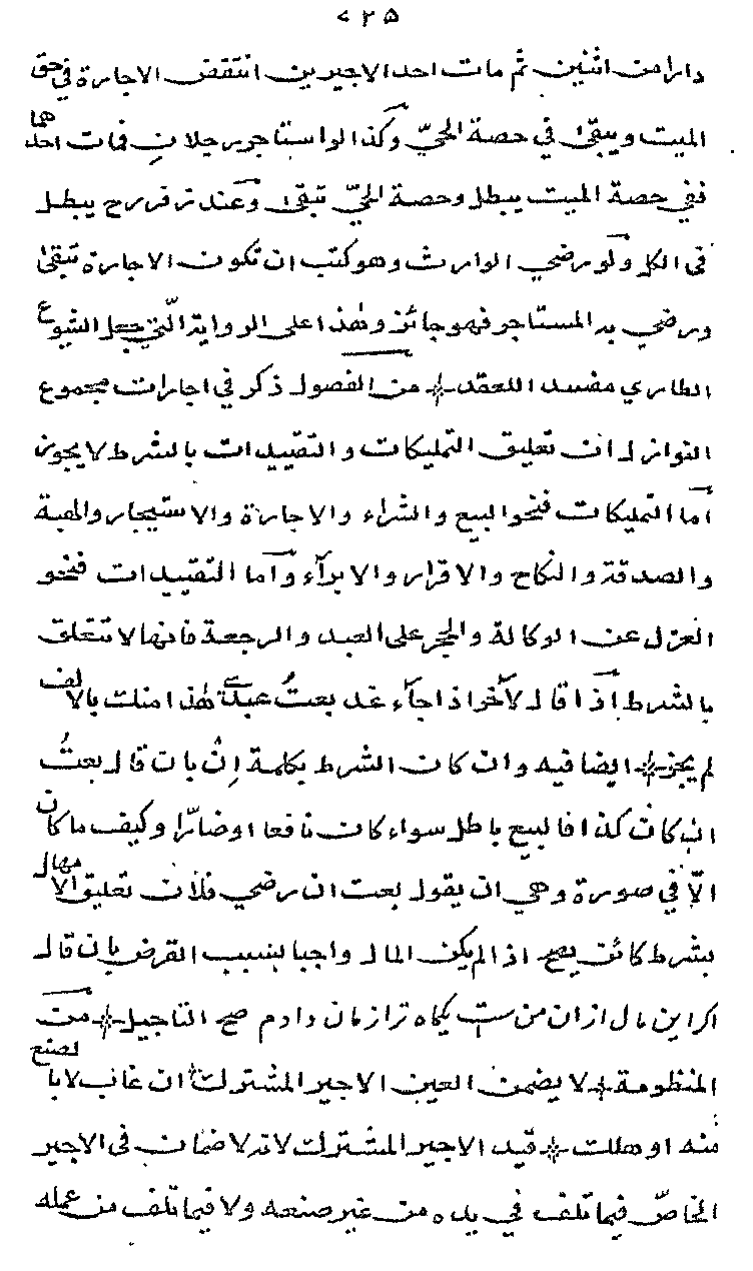 ٧٢٥
دارا من اثنين ثم مات احد الاجيرين انتقض الاجارة في حق
الميت ويبقى في حصة الحيّ وكذا لو استاجر رجلان فمات احدهما
ففي حصة الميت يبطل وحصة الحيّ تبقى وعند زفر رح يبطل
في الكل ولو رضي الوارث وهو كتب ان تكون الاجارة تبقى
ورضي به المستاجر فهو جائز وهٰذا على الرواية الّتي جعل الشيوع
الطاري مفسدا للعقد من الفصول ذكر في اجارات مجموع
النوازل ان تعليق التمليكات والتقييدات بالشرط لا يجوز
أما التمليكات فنحو البيع والشراء والاجارة والاستيجار والهبة
والصدقة والنكاح والاقرار والابرآء وأما التقييدات فنحو
العزل عن الوكالة والحجر على العبد والرجعة فانها لا تتعلق
بالشرط اذا قال لآخر اذا جآء غد بعتُ عبدي هٰذا منك بالالف
لم يجز ايضا فيه وان كان الشرط بكلمة اِنْ بان قال بعتُ
ان كان كذا فالبيع باطل سواء كان نافعا او ضارّا وكيف ما كان
الّا في صورة وهي ان يقول بعت ان رضي فلان تعليق الامهال
بشرط كائن يصح اذا لم يكن المال واجبا بسبب القرض بان قال
اكر اين مال ازان من ست يكماه ترا زمان دادم صح التاجيل من
المنظومة لا يضمن العين الاجير المشترك ان غاب لا بالصنع
منه او هلك قيد الاجير المشترك لانه لا ضمان في الاجير
الخاصّ فيما تلف في يده من غير صنعه ولا فيما تلف من عمله